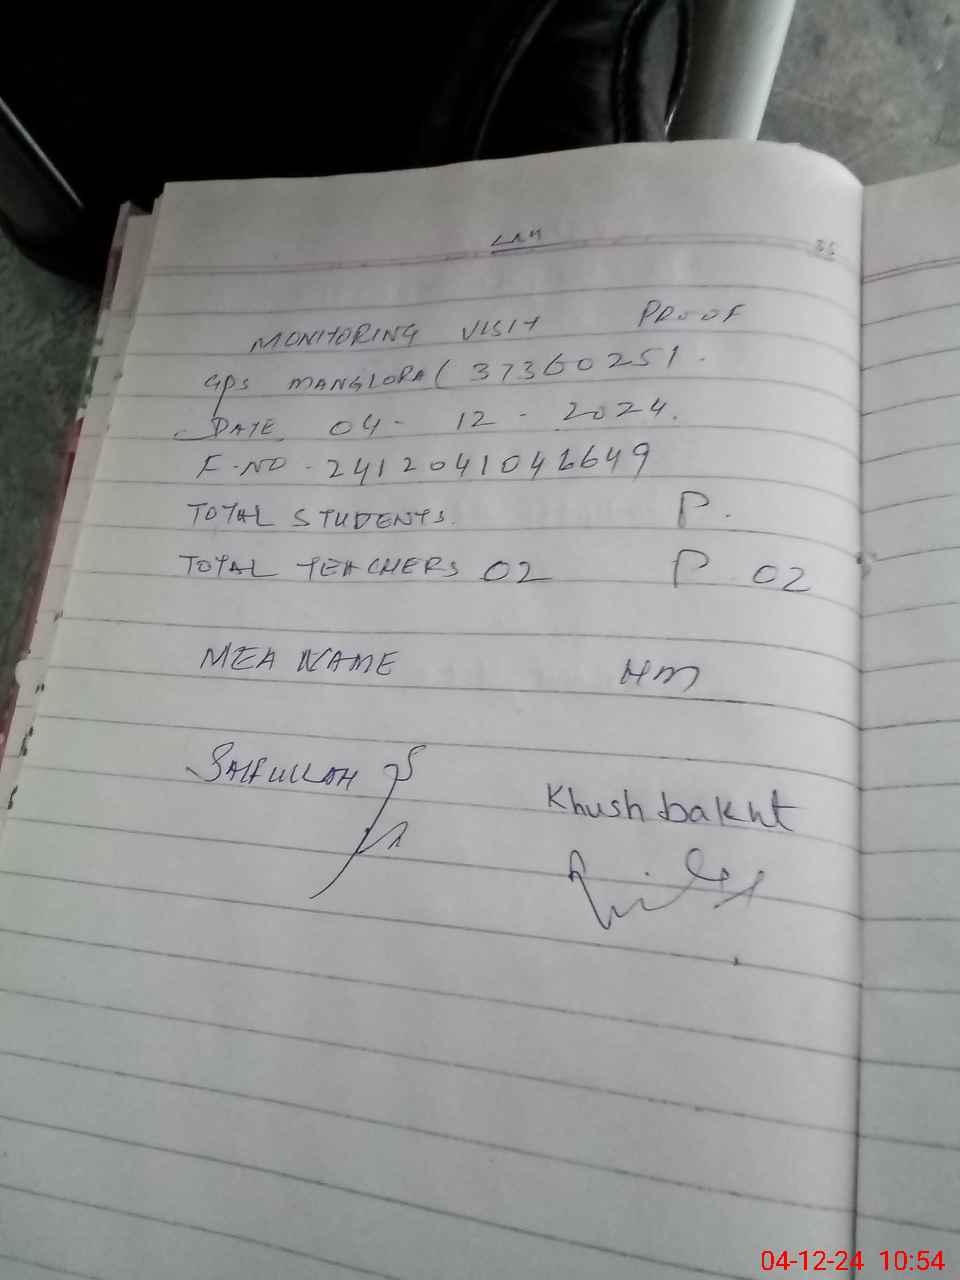 35
MONITORING VISIT PROOF
GPS MANGLORA ( 37360251.
DATE 04 - 12 - 2024.
F.NO - 2412041041649
TOTAL STUDENTS. P.
TOTAL TEACHERS 02 P 02
MEA NAME HM
SAIFULLAH
Khushbakht
04-12-24 10:54